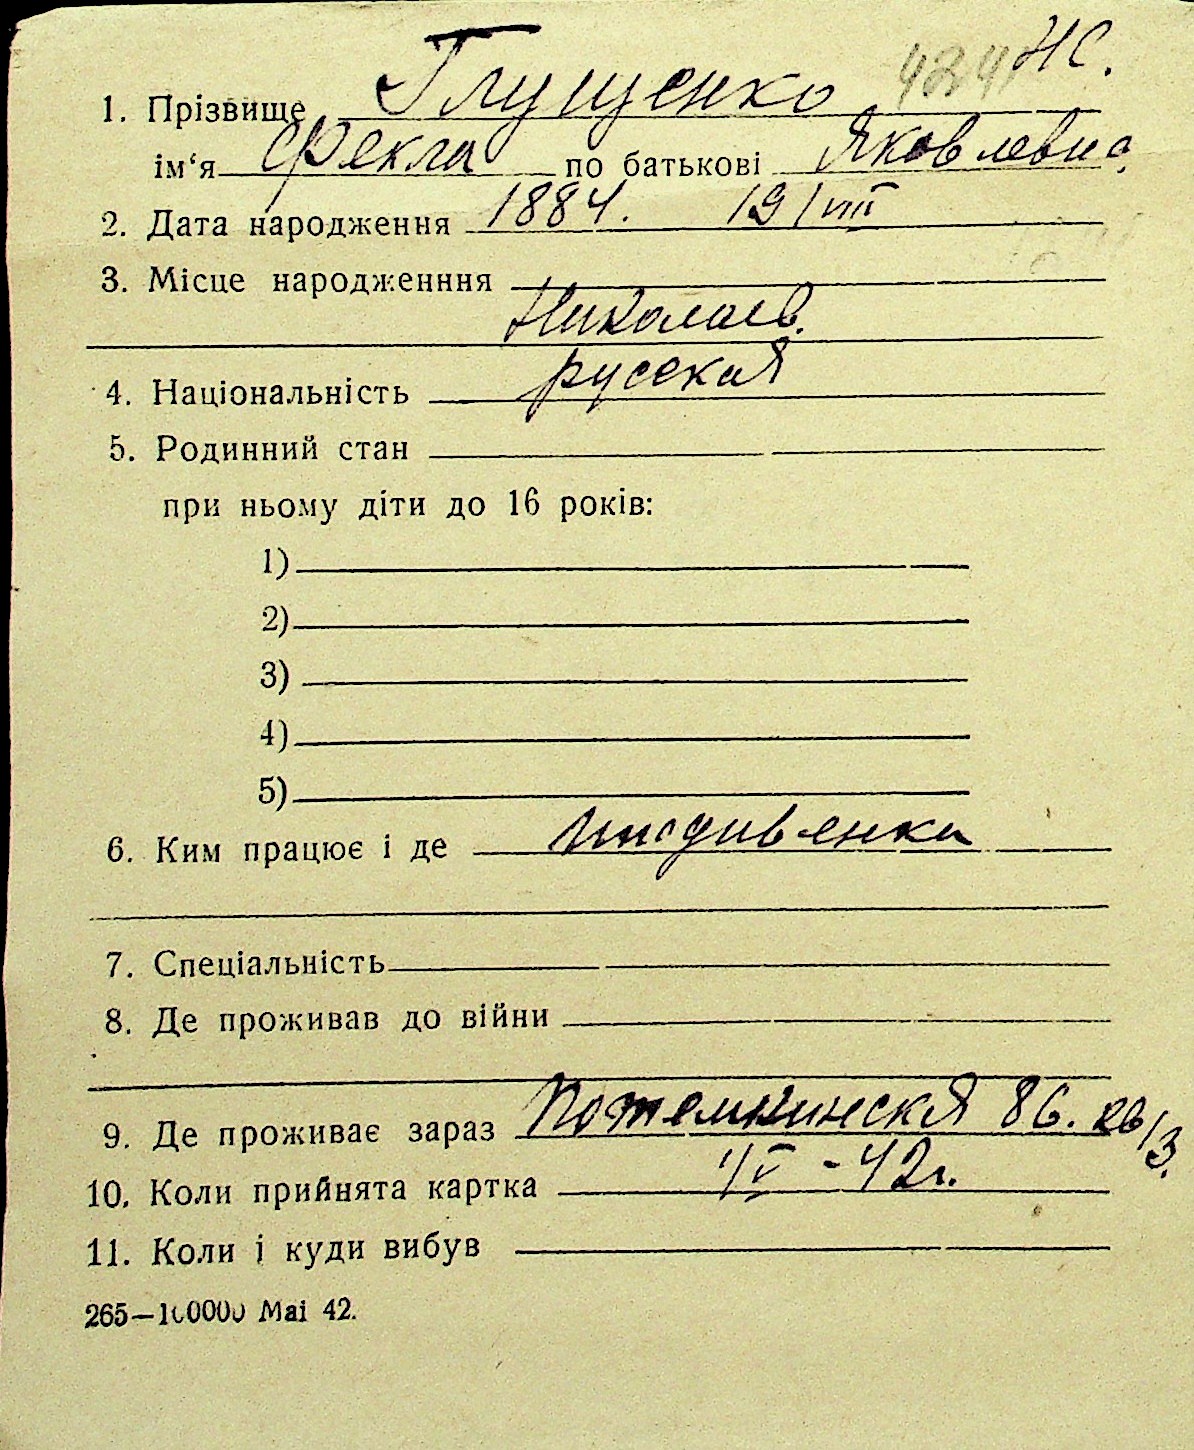 НС.
4241
1. Прізвище Глущенко
ім‘я Фекла по батькові Яковлевна
2. Дата народження 1884. 19/VIII
3. Місце народженння
Николаев.
4. Національність русская
5. Родинний стан
при ньому діти до 16 років:
1)
2)
3)
4)
5)
6. Ким працює і де иждивенка
7. Спеціальність
8. Де проживав до війни
9. Де проживає зараз Потемкинская 86. кв/3.
10. Коли прийнята картка 1/V - 42г.
11. Коли і куди вибув
265—100000 Mai 42.